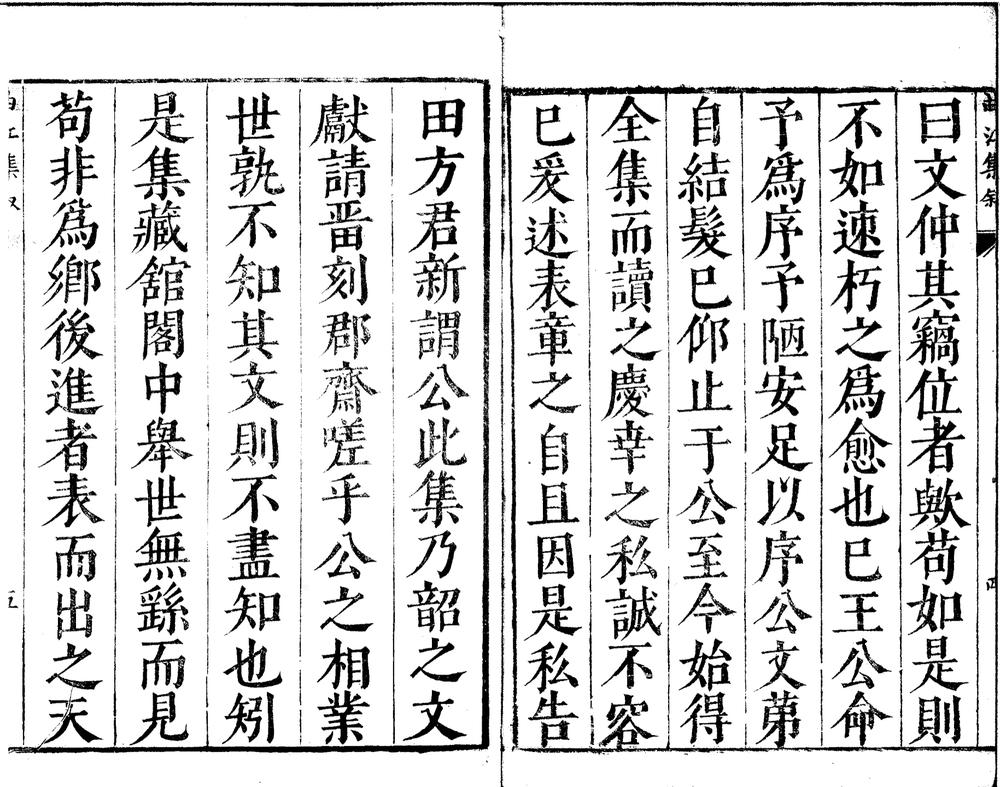 曲江集敘
曰文仲其竊位者歟茍如是則
不如速朽之爲愈也巳王公命
予爲序予陋安足以序公文苐
自結髮巳仰止于公至今始得
全集而讀之慶幸之私誠不容
巳爰述表章之自且因是私告
四
田方君新謂公此集乃韶之文
獻請畱刻郡齋嗟乎公之相業
世孰不知其文則不盡知也矧
是集藏舘閣中舉世無繇而見
茍非爲鄉後進者表而出之天
五